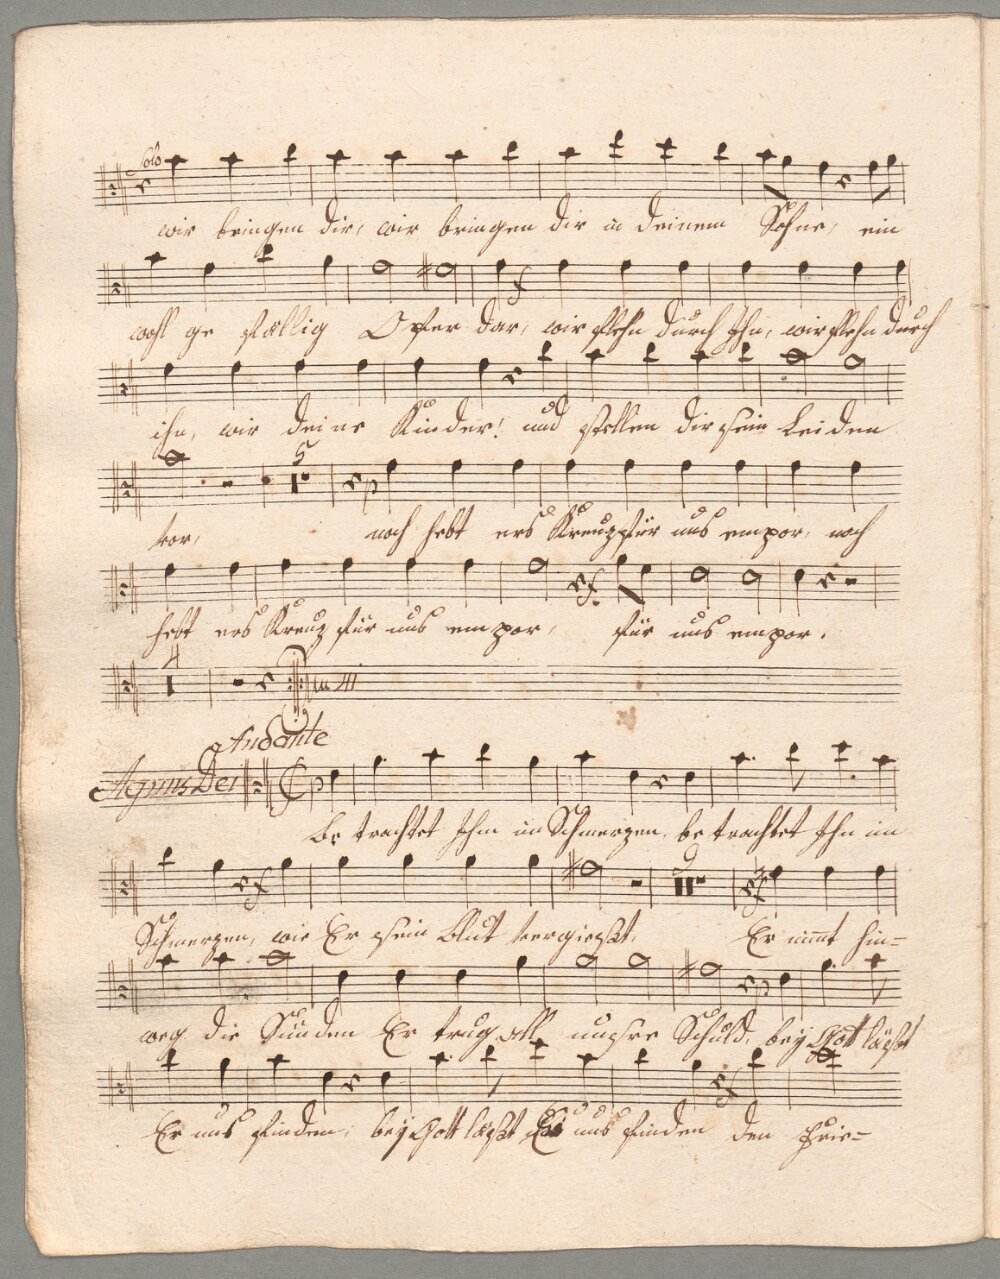 Solo
wir bringen dir, wir bringen dir in deinem Sohne, ein
wohl ge fällig Opfer dar, wir flehn durch Ihn, wir flehn durch
ihn, wir deine Kinder! und stellen dir sein Leiden
5
vor, noch hebt ers Kreuz für uns empor, noch
hebt ers Kreuz für uns empor, für uns empor.
4
Andante
Agnus Dei
Be trachtet Ihm im Schmerzen, be trachtet Ihn im
2
Schmerzen, wie Er sein Blut vergießt. Er nimt hin=
weg die Sünden Er trug all unsre Schuld, bey Gott läßt
Er uns finden, bey Gott läßt Er uns finden den Frie=